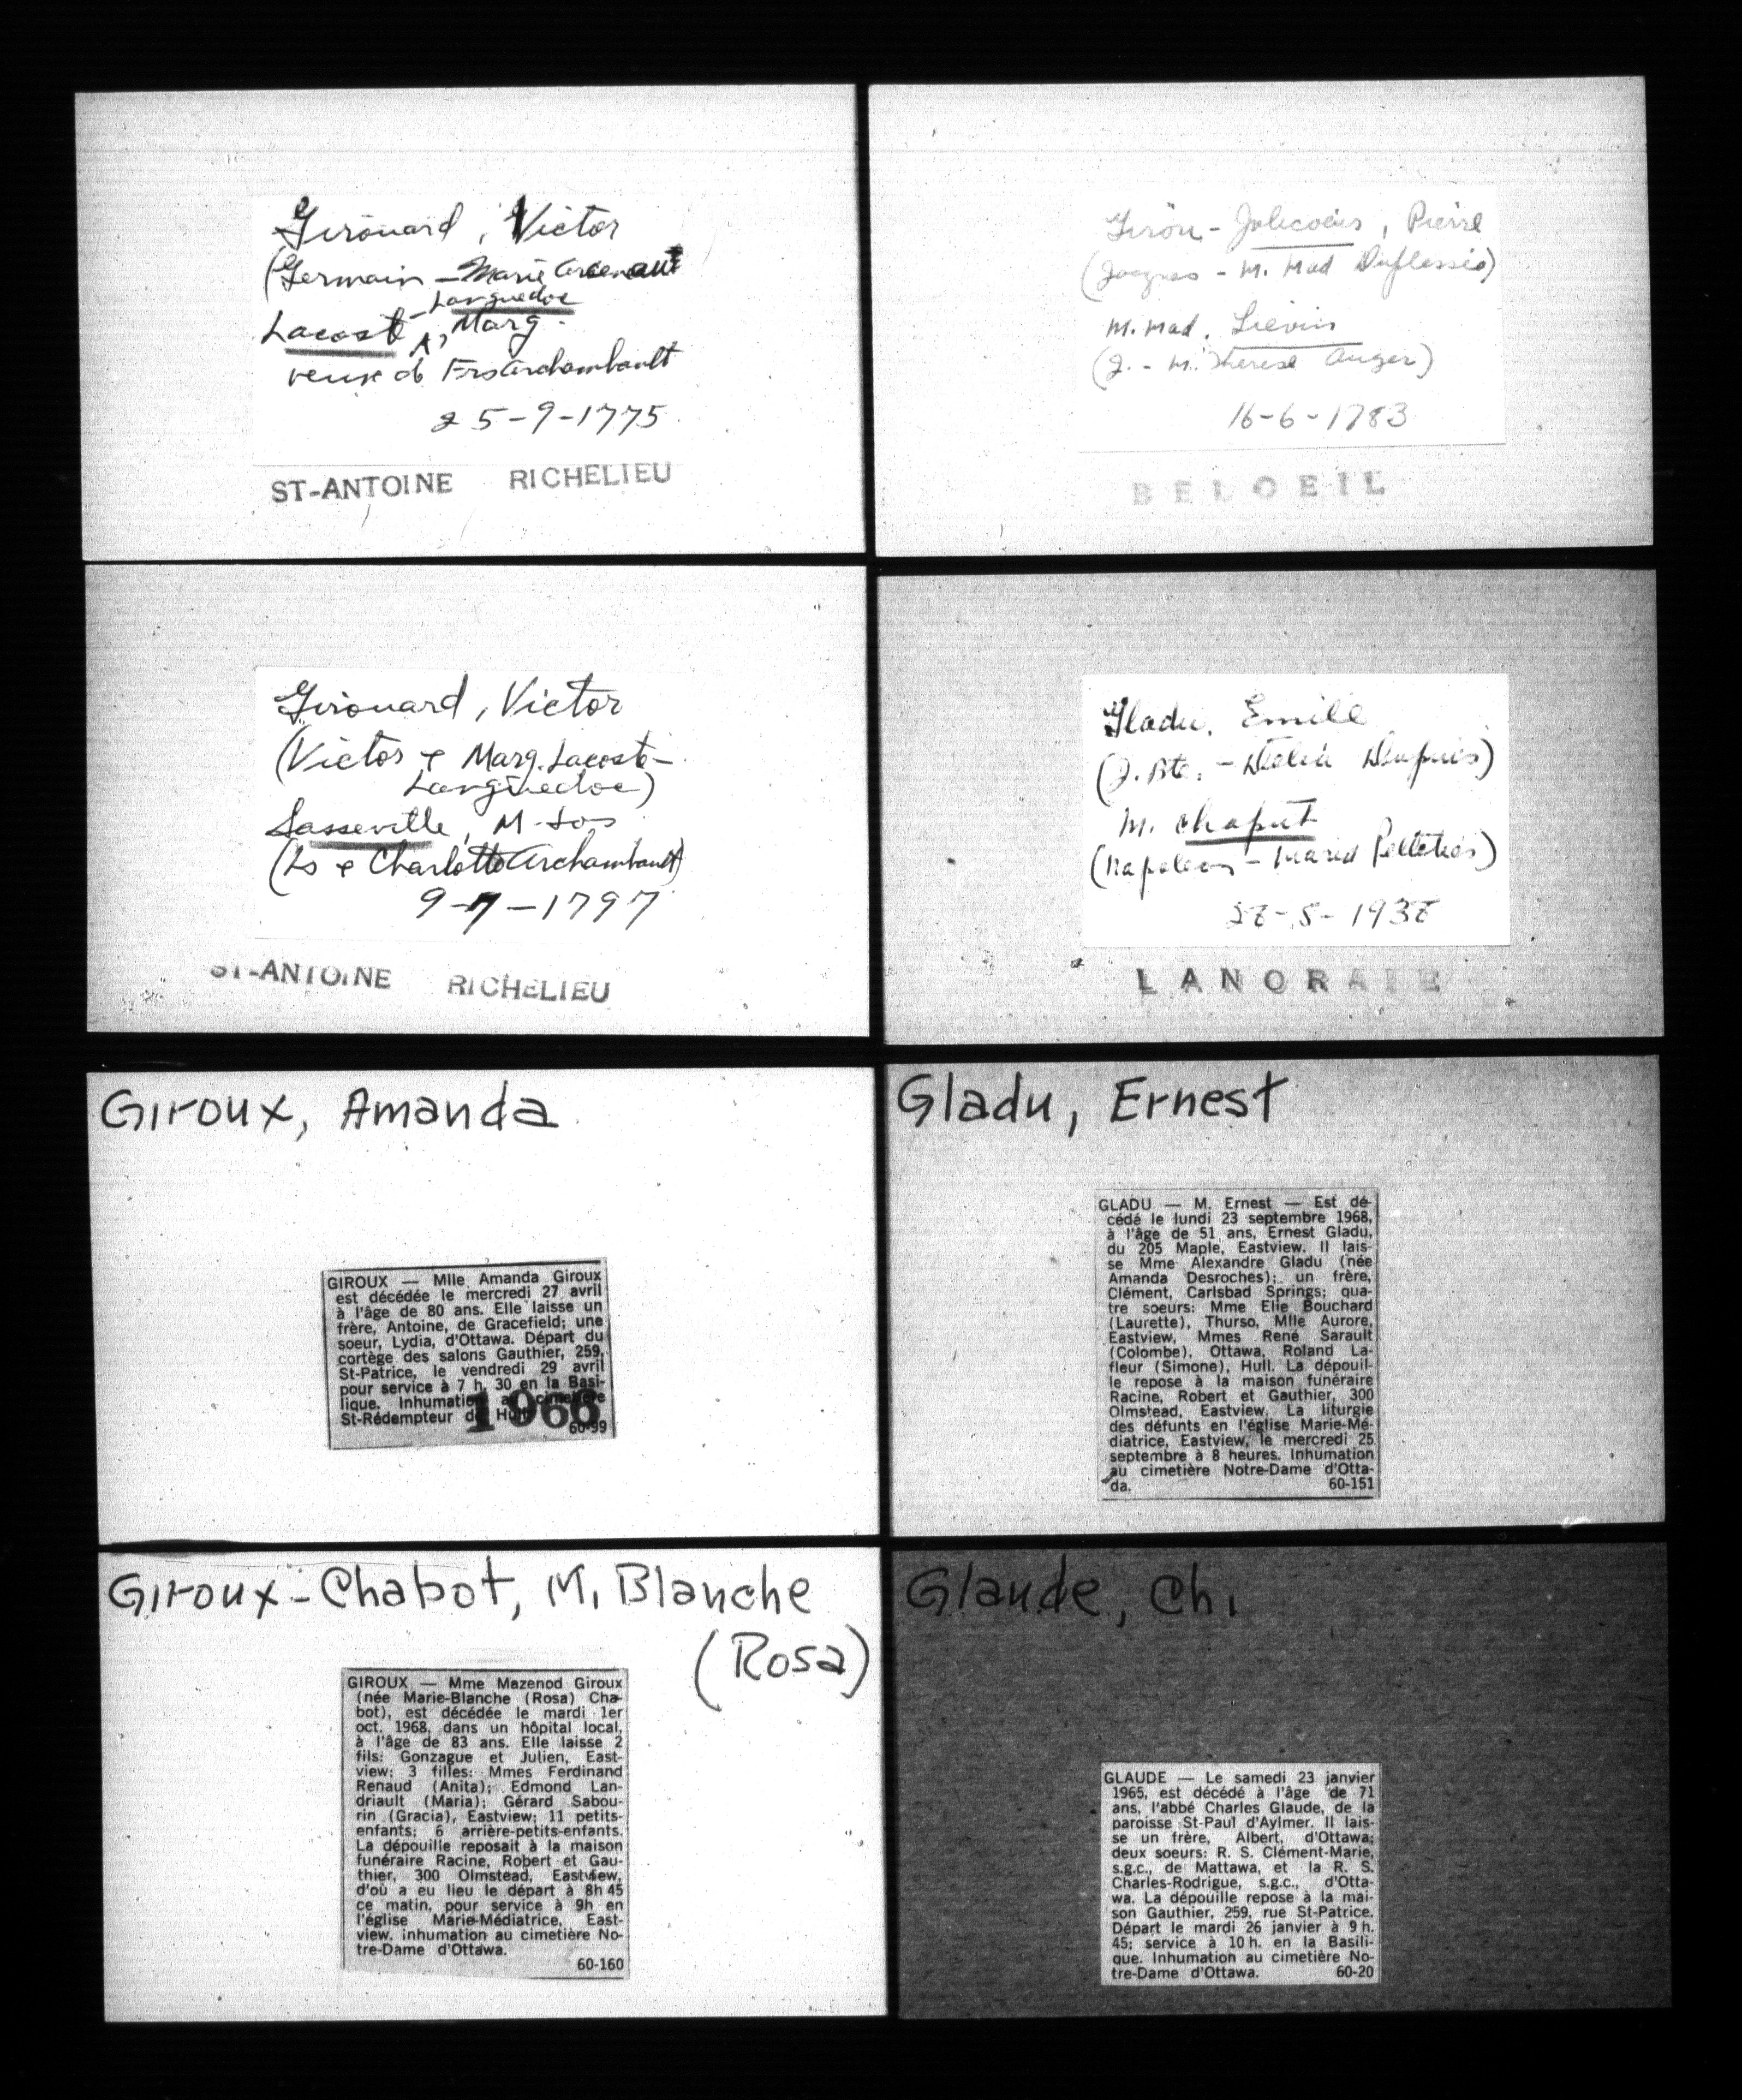 Girouard, Victor
(Germain - Marie Arsenault
- Languedoc
Lacoste, Marg.
veuve de Frs Archambault
25-9-1775
ST-ANTOINE RICHELIEU
Girouard, Victor
(Victor & Marg. Lacoste-
Languedoc)
Lasseville, M-
(Ls & Charlotte Archambault)
9-7-1797
ST-ANTOINE RICHELIEU
Giroux, Amanda
GIROUX — Mlle Amanda Giroux
est décédée le mercredi 27 avril
à l'âge de 80 ans. Elle laisse un
frère, Antoine, de Gracefield; une
soeur, Lydia, d'Ottawa. Départ du
cortège des salons Gauthier, 259,
St-Patrice, le vendredi 29 avril
pour service à 7 h. 30 en la Basi-
lique. Inhumation au cimetière
St-Rédempteur de Hull.
1966
60-99
Giroux-Chabot, M. Blanche
(Rosa)
GIROUX — Mme Mazenod Giroux
(née Marie-Blanche (Rosa) Cha-
bot), est décédée le mardi 1er
oct. 1968, dans un hôpital local,
à l'âge de 83 ans. Elle laisse 2
fils: Gonzague et Julien, East-
view; 3 filles: Mmes Ferdinand
Renaud (Anita); Edmond Lan-
driault (Maria); Gérard Sabou-
rin (Gracia), Eastview; 11 petits-
enfants; 6 arrière-petits-enfants.
La dépouille reposait à la maison
funéraire Racine, Robert et Gau-
thier, 300 Olmstead, Eastview,
d'où a eu lieu le départ à 8h 45
ce matin, pour service à 9h en
l'église Marie-Médiatrice, East-
view. inhumation au cimetière No-
tre-Dame d'Ottawa.
60-160
Girou - Jolicoeur, Pierre
(Jacques - M. Mad Duplessis)
M. Mad. Lievin
(J. - M. Therese Auger)
16-6-1783
BELOEIL
Gladu, Emile
(J. Bte. - Delia Dupuis)
M. Chaput
(Napoleon - Maria Pelletier)
-5-
LANORAIE
Gladu, Ernest
GLADU — M. Ernest — Est dé-
cédé le lundi 23 septembre 1968,
à l'âge de 51 ans, Ernest Gladu,
du 205 Maple, Eastview. Il lais-
se Mme Alexandre Gladu (née
Amanda Desroches); un frère,
Clément, Carlsbad Springs; qua-
tre soeurs: Mme Elie Bouchard
(Laurette), Thurso, Mlle Aurore,
Eastview, Mmes René Sarault
(Colombe), Ottawa, Roland La-
fleur (Simone), Hull. La dépouil-
le repose à la maison funéraire
Racine, Robert et Gauthier, 300
Olmstead, Eastview. La liturgie
des défunts en l'église Marie-Mé-
diatrice, Eastview, le mercredi 25
septembre à 8 heures. Inhumation
au cimetière Notre-Dame d'Otta-
da.
60-151
Glaude, Ch.
GLAUDE — Le samedi 23 janvier
1965, est décédé à l'âge de 71
ans, l'abbé Charles Glaude, de la
paroisse St-Paul d'Aylmer. Il lais-
se un frère, Albert, d'Ottawa;
deux soeurs: R. S. Clément-Marie,
s.g.c., de Mattawa, et la R. S.
Charles-Rodrigue, s.g.c., d'Otta-
wa. La dépouille repose à la mai-
son Gauthier, 259, rue St-Patrice.
Départ le mardi 26 janvier à 9 h.
45; service à 10 h. en la Basili-
que. Inhumation au cimetière No-
tre-Dame d'Ottawa.
60-20